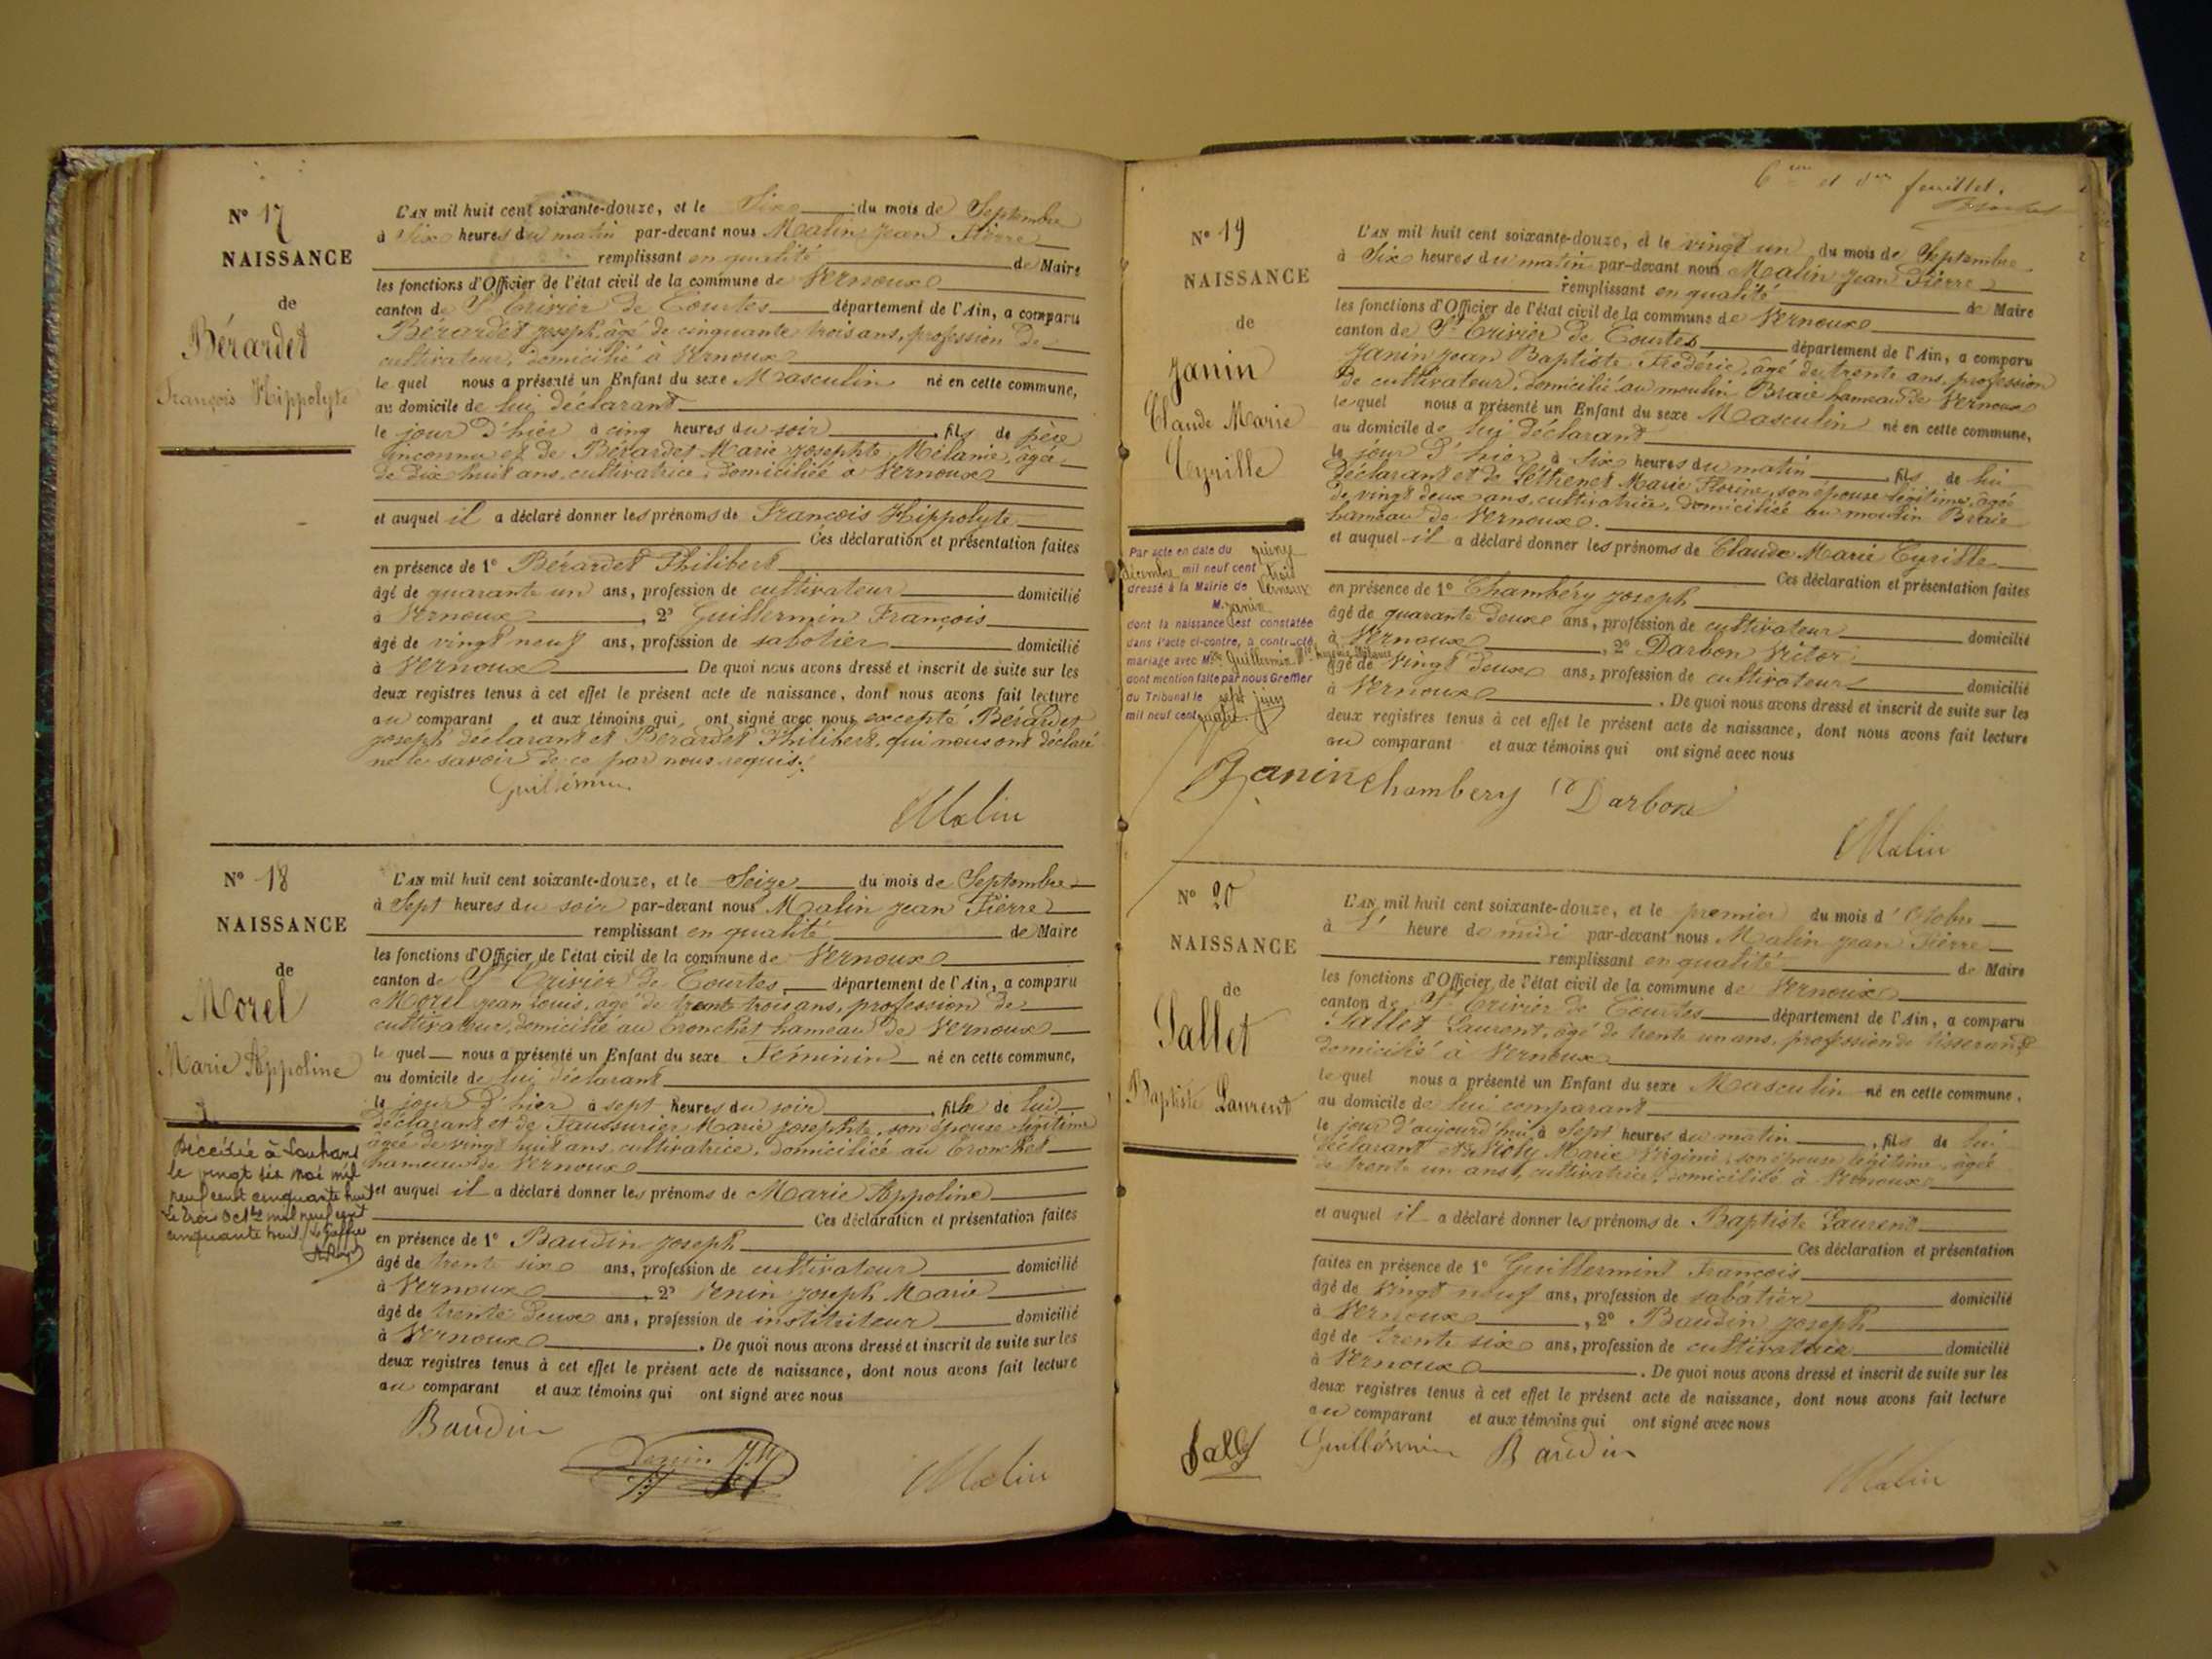 N° 17
NAISSANCE
de
Bérardet
François Hippolyte
L'AN mil huit cent soixante-douze, et le Six du mois de Septembre
à Six heures du matin par-devant nous Malin Jean Pierre
remplissant en qualité de Maire
les fonctions d'Officier de l'état civil de la commune de Vernoux
canton de St Trivier de Courtes département de l'Ain, a comparu
Bérardet Joseph, âgé de cinquante trois ans, profession de
cultivateur, domicilié à Vernoux
le quel nous a présenté un Enfant du sexe Masculin né en cette commune,
au domicile de lui déclarant
le jour d'hier à cinq heures du soir, fils de père
inconnu et de Bérardet Marie Josephte Mélanie, âgée
de dix huit ans, cultivatrice, domiciliée à Vernoux
et auquel il a déclaré donner les prénoms de François Hippolyte
Ces déclaration et présentation faites
en présence de 1° Bérardet Philibert
âgé de quarante un ans, profession de cultivateur domicilié
à Vernoux, 2° Guillermin François
âgé de vingt neuf ans, profession de sabotier domicilié
à Vernoux De quoi nous avons dressé et inscrit de suite sur les
deux registres tenus à cet effet le présent acte de naissance, dont nous avons fait lecture
au comparant et aux témoins qui ont signé avec nous excepté Bérardet
Joseph déclarant et Bérardet Philibert, qui nous ont déclaré
ne le savoir de ce par nous requis.
Guillermin
Malin
N° 18
NAISSANCE
de
Morel
Marie Appoline
Décédée à Louhans
le vingt six mai mil
neuf cent cinquante huit
Le trois Octbre mil neuf cent
cinquante huit / Le Greffier
L'AN mil huit cent soixante-douze, et le Seize du mois de Septembre
à Sept heures du soir par-devant nous Malin Jean Pierre
remplissant en qualité de Maire
les fonctions d'Officier de l'état civil de la commune de Vernoux
canton de St Trivier de Courtes, département de l'Ain, a comparu
Morel Jean Louis, âgé de trente trois ans, profession de
cultivateur, domicilié au Cronchet hameau de Vernoux
le quel nous a présenté un Enfant du sexe Féminin né en cette commune,
au domicile de lui déclarant
le jour d'hier à sept heures du soir, fille de lui
déclarant et de Taussurier Marie Josephte, son épouse légitime
âgée de vingt huit ans, cultivatrice, domiciliée au Cronchet
hameau de Vernoux
et auquel il a déclaré donner les prénoms de Marie Appoline
Ces déclaration et présentation faites
en présence de 1° Baudin Joseph
âgé de trente six ans, profession de cultivateur domicilié
à Vernoux, 2° Venin Joseph Marie
âgé de trente deux ans, profession de instituteur domicilié
à Vernoux. De quoi nous avons dressé et inscrit de suite sur les
deux registres tenus à cet effet le présent acte de naissance, dont nous avons fait lecture
au comparant et aux témoins qui ont signé avec nous
Baudin
Venin J. M.
Malin
6me et der feuillet.
N° 19
NAISSANCE
de
Janin
Claude Marie
Cyrille
Par acte en date du quinze
décembre mil neuf cent trois
dressé à la Mairie de Vernoux
M. Janin
dont la naissance est constatée
dans l'acte ci-contre, a contracté
mariage avec Mlle Guillermin
dont mention faite par nous Greffier
du Tribunal le sept juin
mil neuf cent quatre
L'AN mil huit cent soixante-douze, et le vingt un du mois de Septembre
à Six heures du matin par-devant nous Malin Jean Pierre
remplissant en qualité de Maire
les fonctions d'Officier de l'état civil de la commune de Vernoux
canton de St Trivier de Courtes département de l'Ain, a comparu
Janin Jean Baptiste Frédéric, âgé de trente ans, profession
de cultivateur, domicilié au moulin Braie hameau de Vernoux
le quel nous a présenté un Enfant du sexe Masculin né en cette commune,
au domicile de lui déclarant
le jour d'hier à Six heures du matin, fils de lui
déclarant et de Péthenet Marie Florine, son épouse légitime, âgée
de vingt deux ans, cultivatrice, domiciliée au moulin Braie
hameau de Vernoux.
et auquel il a déclaré donner les prénoms de Claude Marie Cyrille
Ces déclaration et présentation faites
en présence de 1° Chambéry Joseph
âgé de quarante deux ans, profession de cultivateur domicilié
à Vernoux, 2° Darbon Victor
âgé de vingt deux ans, profession de cultivateur domicilié
à Vernoux. De quoi nous avons dressé et inscrit de suite sur les
deux registres tenus à cet effet le présent acte de naissance, dont nous avons fait lecture
au comparant et aux témoins qui ont signé avec nous
Janin Chambery Darbon
Malin
N° 20
NAISSANCE
de
Pallet
Baptiste Laurent
L'AN mil huit cent soixante-douze, et le premier du mois d'Octobre
à 1' heure de midi par-devant nous Malin Jean Pierre
remplissant en qualité de Maire
les fonctions d'Officier de l'état civil de la commune de Vernoux
canton de St Trivier de Courtes département de l'Ain, a comparu
Pallet Laurent, âgé de trente un ans, profession de tisserand
domicilié à Vernoux
le quel nous a présenté un Enfant du sexe Masculin né en cette commune,
au domicile de lui comparant
le jour d'aujourd'hui à Sept heures du matin, fils de lui
déclarant et de Marie Virginie, son épouse légitime, âgée
de trente un ans, cultivatrice, domiciliée à Vernoux
et auquel il a déclaré donner les prénoms de Baptiste Laurent
Ces déclaration et présentation
faites en présence de 1° Guillermin François
âgé de vingt neuf ans, profession de sabotier domicilié
à Vernoux, 2° Baudin Joseph
âgé de trente six ans, profession de cultivateur domicilié
à Vernoux. De quoi nous avons dressé et inscrit de suite sur les
deux registres tenus à cet effet le présent acte de naissance, dont nous avons fait lecture
au comparant et aux témoins qui ont signé avec nous
Guillermin Baudin
Malin